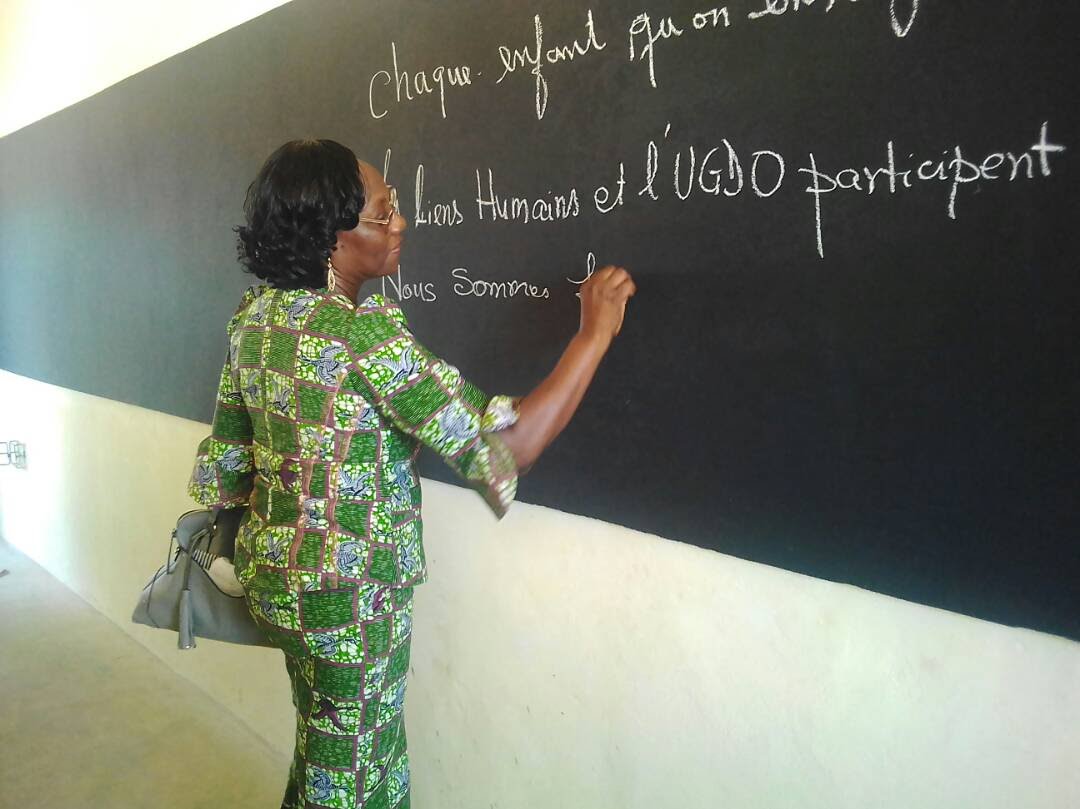 chaque enfant qu'on
Liens Humains et l'UGDO participent
Nous sommes